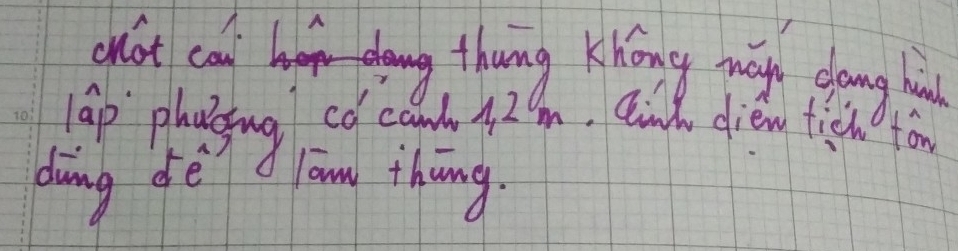 Một cái hộp dạng thùng không nắp dạng hình
lập phương có cạnh 1,2 m. Tính diện tích tôn
dùng để làm thùng.